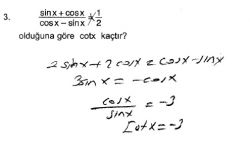 3. sinx + cosx / cosx − sinx = 1/2
olduğuna göre cotx kaçtır?
2 sinx + 2 cosx = cosx - sinx
3sinx = -cosx
cosx / sinx = -3
Cotx = -3